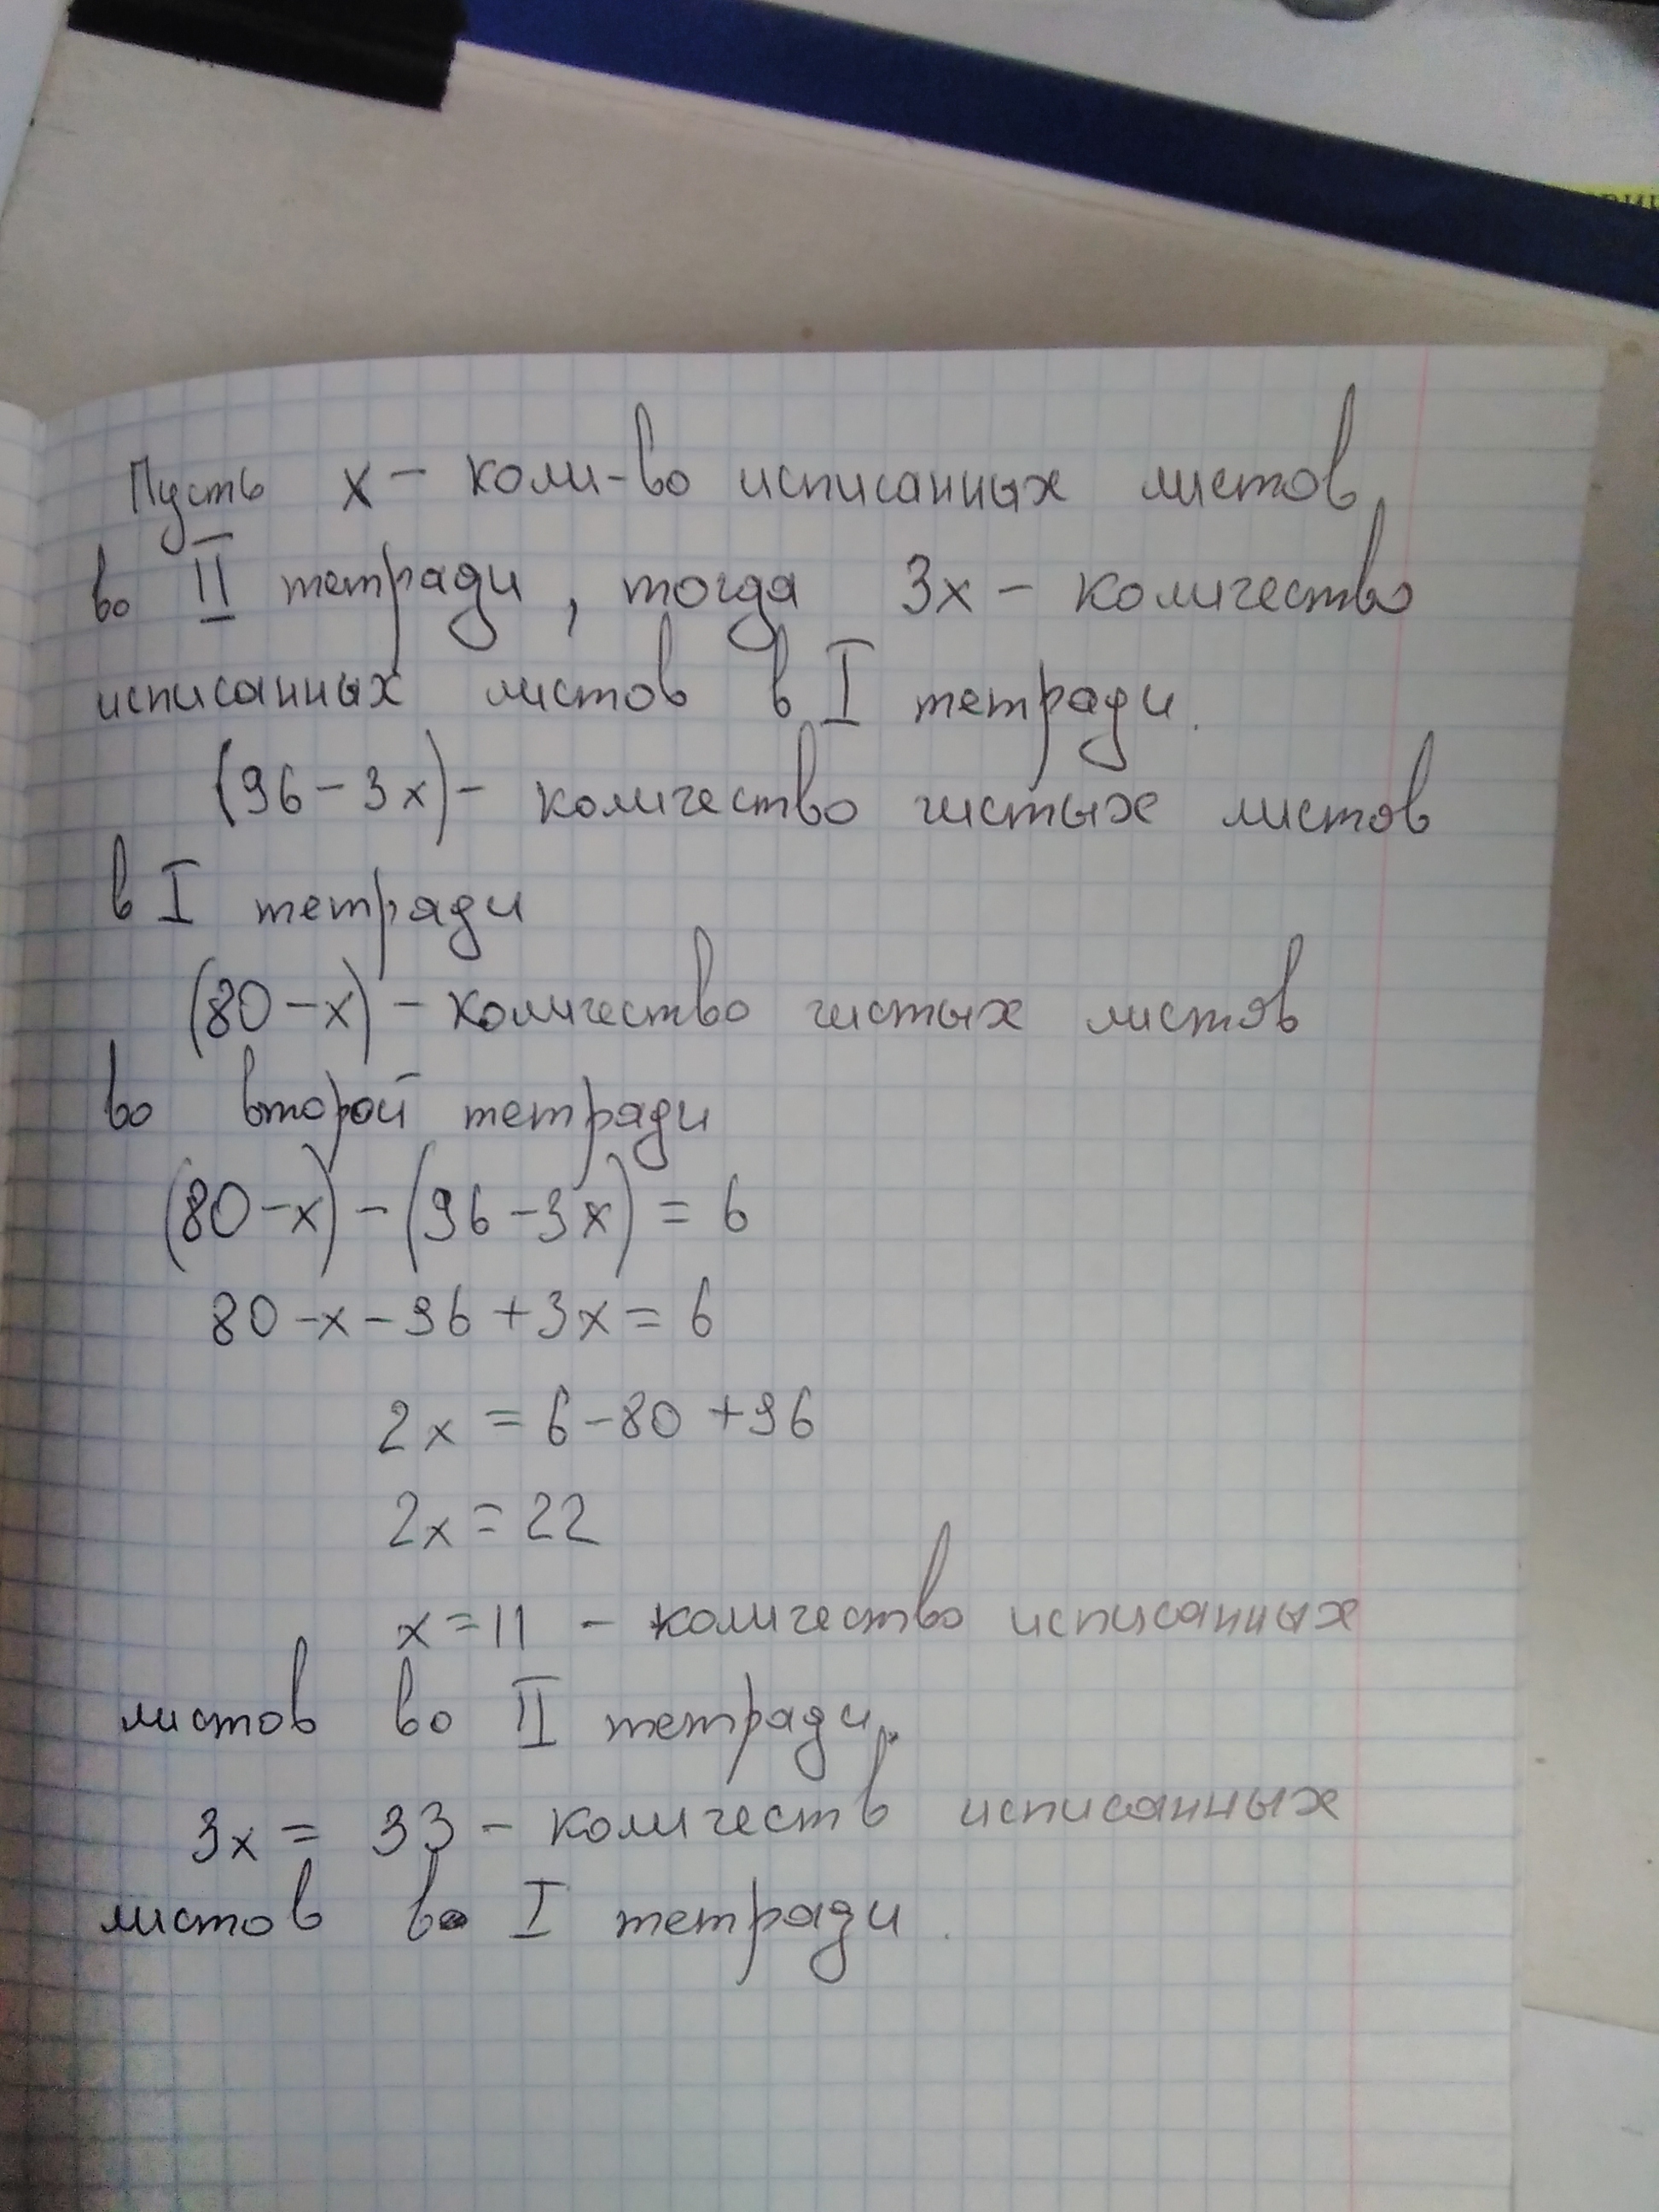 Пусть x - коли-во исписанных листов
во II тетради, тогда 3x - количество
исписанных листов в I тетради.
(96 - 3x) - количество чистых листов
в I тетради
(80 - x) - количество чистых листов
во второй тетради
(80 - x) - (96 - 3x) = 6
80 - x - 96 + 3x = 6
2x = 6 - 80 + 96
2x = 22
x = 11 - количество исписанных
листов во II тетради.
3x = 33 - количеств исписанных
листов в I тетради.